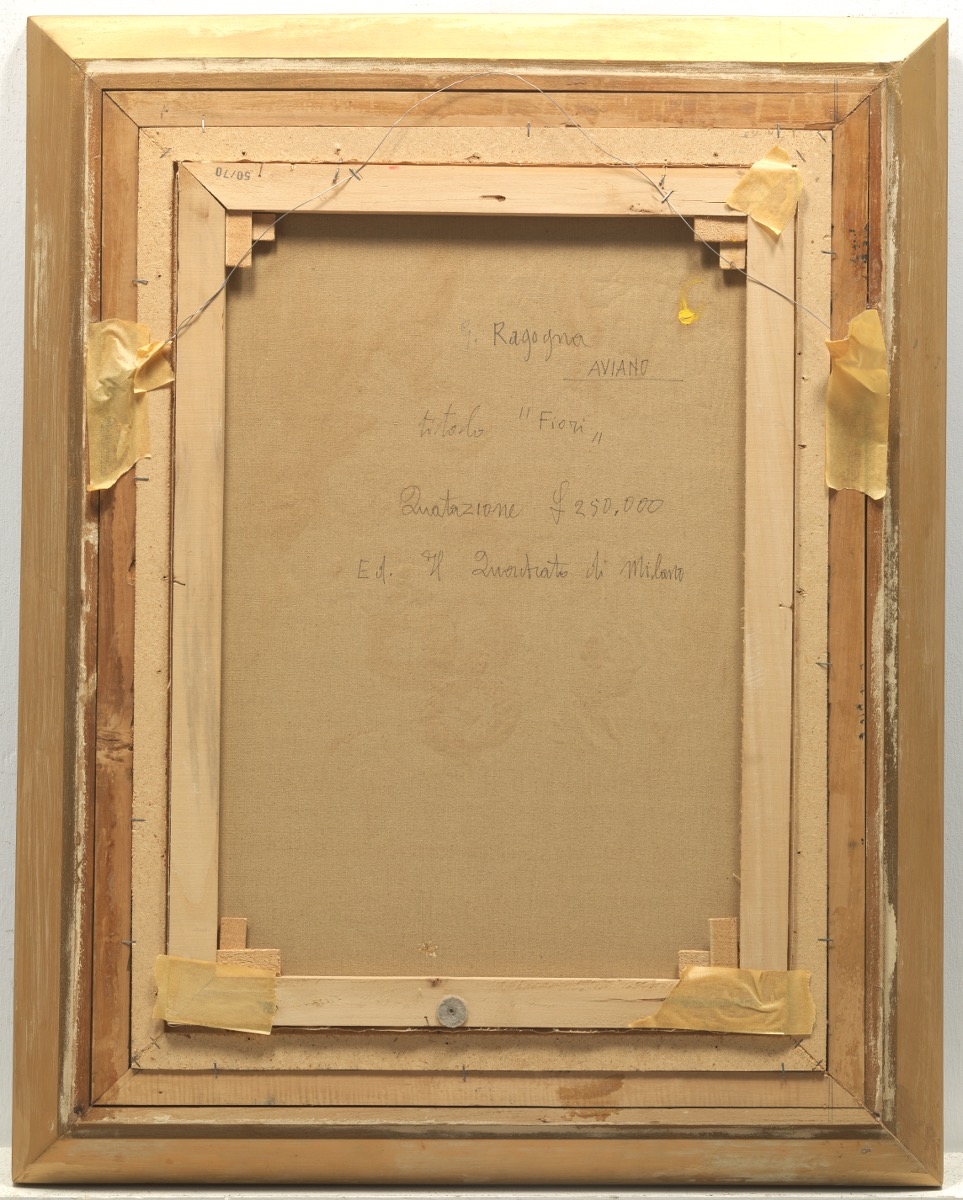 50/70
G. Ragogna
AVIANO
titolo "Fiori"
Quotazione £ 250,000
Ed. Il Quadrato di Milano